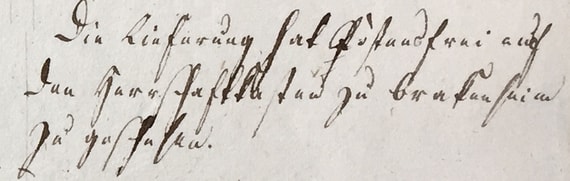 Die Lieferung hat Kostensfrei auf
den Herrschaftkasten zu brakenheim
zu geschehen.